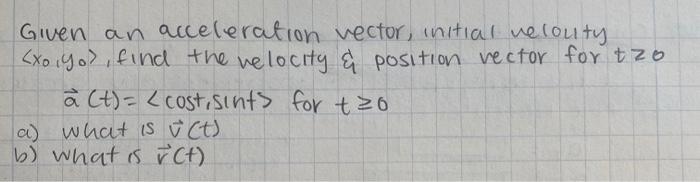 Given an acceleration vector, initial velocity
<x₀, y₀>, find the velocity & position vector for t≥0
a⃗(t) = <cost, sint> for t≥0
a) what is v⃗(t)
b) what is r⃗(t)